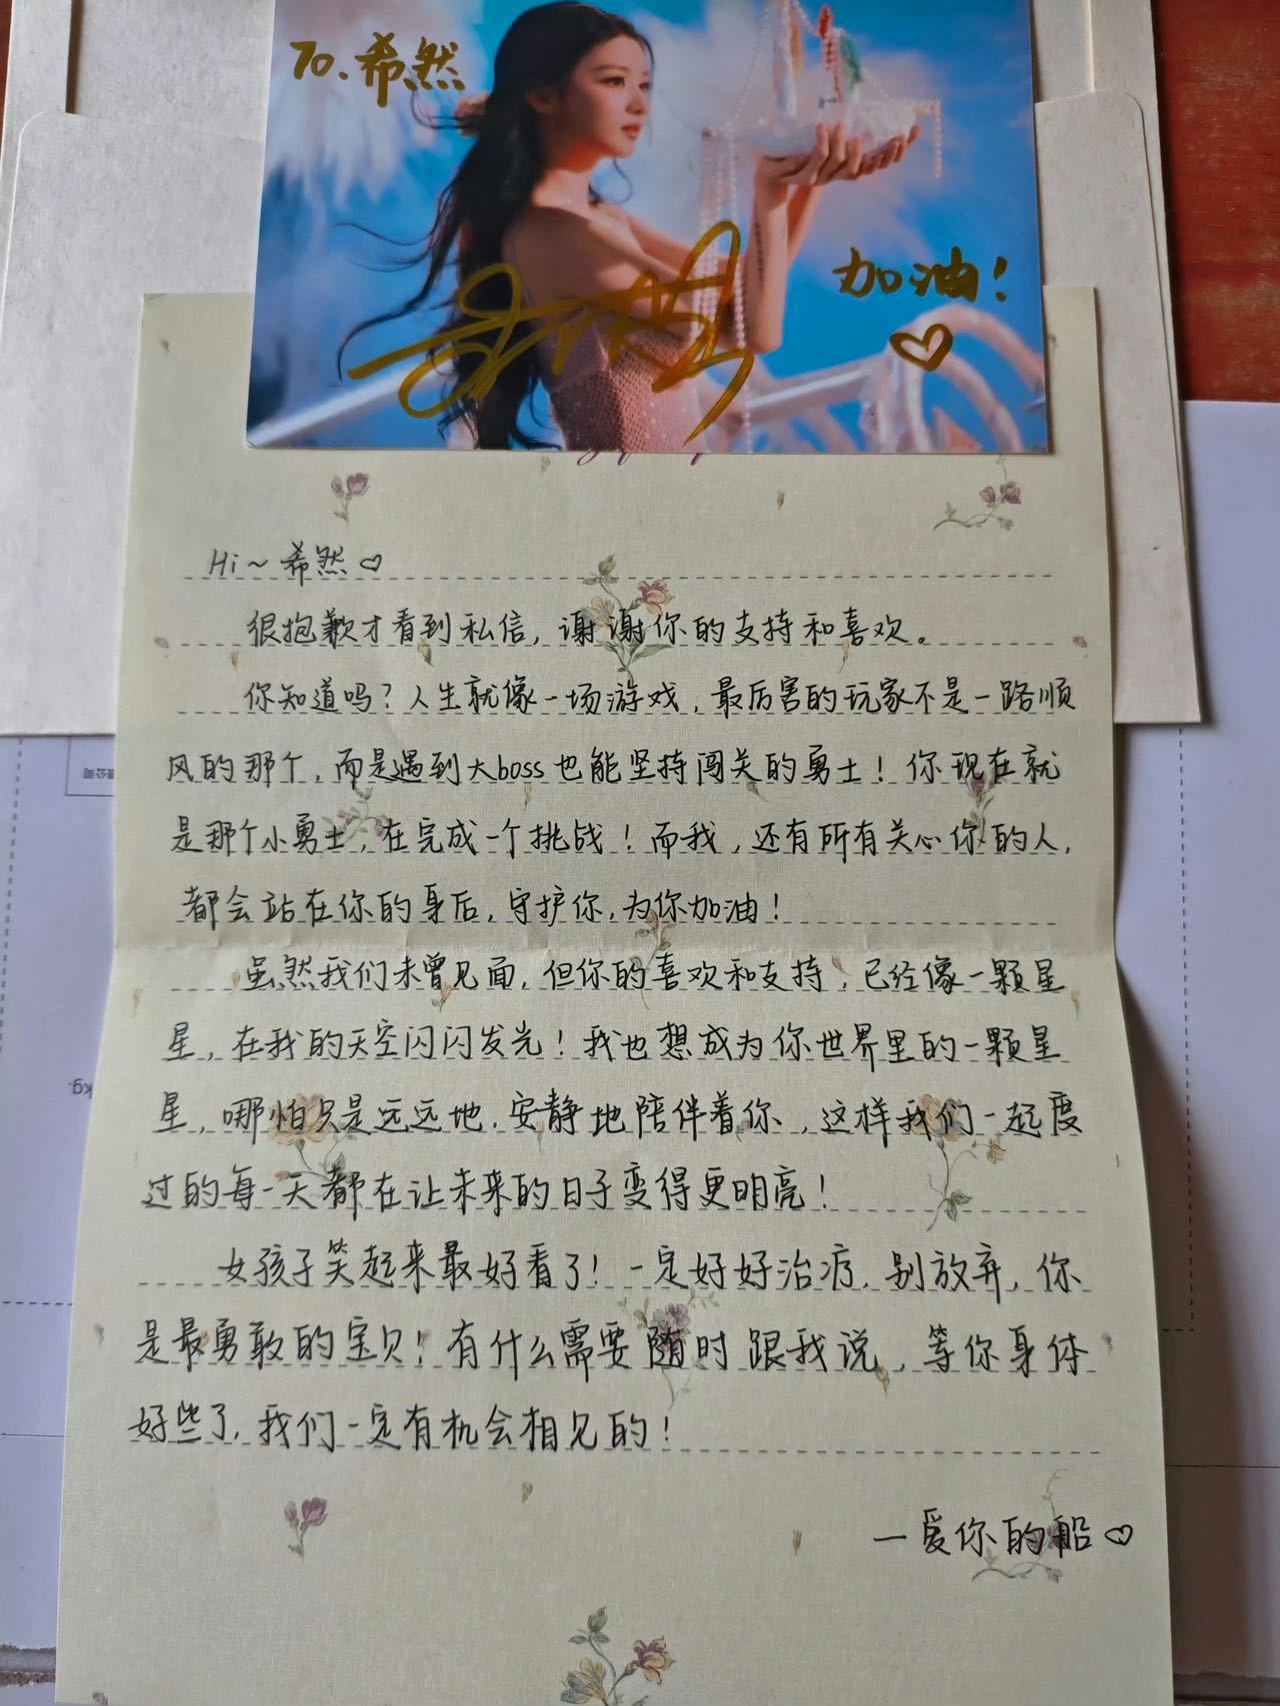 To.希然
加油！
Hi~希然♡
很抱歉才看到私信，谢谢你的支持和喜欢。
你知道吗？人生就像一场游戏，最厉害的玩家不是一路顺
风的那个，而是遇到大boss也能坚持闯关的勇士！你现在就
是那个小勇士，在完成一个挑战！而我，还有所有关心你的人，
都会站在你的身后，守护你，为你加油！
虽然我们未曾见面，但你的喜欢和支持，已经像一颗星
星，在我的天空闪闪发光！我也想成为你世界里的一颗星
星，哪怕只是远远地，安静地陪伴着你，这样我们一起度
过的每一天都在让未来的日子变得更明亮！
女孩子笑起来最好看了！一定好好治疗，别放弃，你
是最勇敢的宝贝！有什么需要随时跟我说，等你身体
好些了，我们一定有机会相见的！
—爱你的船♡
限公司
kg.